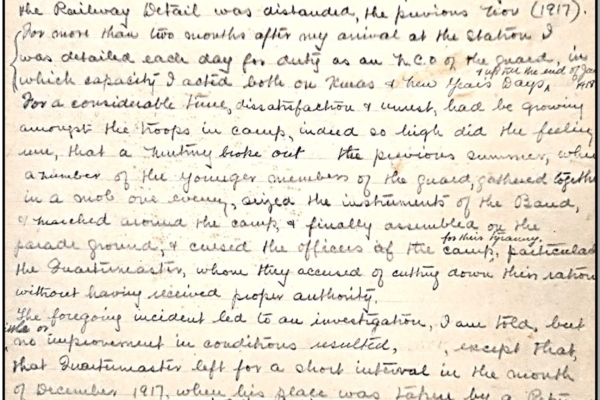 the Railway Detail was disbanded, the previous Nov (1917).
For more than two months after my arrival at the Station I
was detailed each day for duty as an N.C.O of the guard, in
which capacity I acted both on Xmas & New Years Days, & up till the end of Jan 1918
For a considerable time, dissatisfaction & unrest, had be growing
amongst the troops in camp, indeed so high did the feeling
run, that a mutiny broke out the previous summer, when
a number of the younger members of the guard, gathered together
in a mob one evening, sized the instruments of the Band,
& marched around the camp, & finally assembled on the
parade ground, & cursed the officers of the camp, for their tyranny, particular
the Quartermaster, whom they accused of cutting down their ration
without having received proper authority.
The foregoing incident led to an investigation, I am told, but
little or no improvement in conditions resulted, , except that,
that Quartermaster left for a short interval in the month
of December 1917, when his place was taken by a